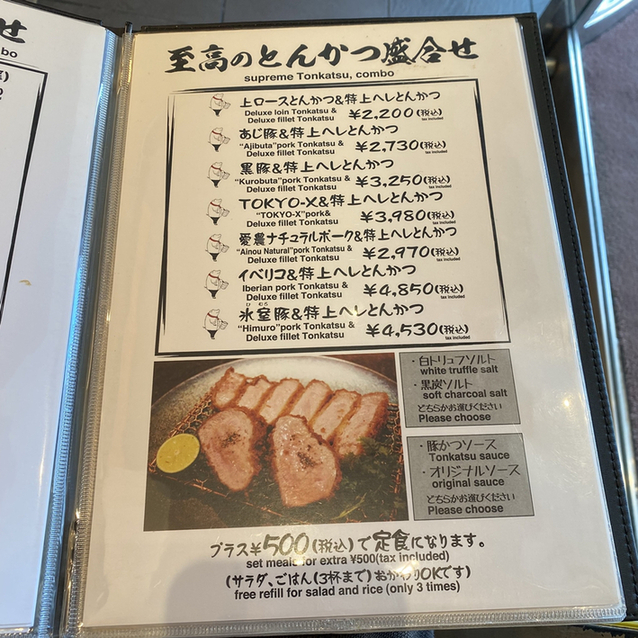 せ
bo
至高のとんかつ盛合せ
supreme Tonkatsu, combo
上ロースとんかつ&特上ヘレとんかつ
Deluxe loin Tonkatsu &
Deluxe fillet Tonkatsu
¥2,200(税込)
tax included
あじ豚&特上ヘレとんかつ
"Ajibuta"pork Tonkatsu &
Deluxe fillet Tonkatsu
¥2,730(税込)
tax included
黒豚&特上ヘレとんかつ
"Kurobuta"pork Tonkatsu &
Deluxe fillet Tonkatsu
¥3,250(税込)
tax included
TOKYO-X&特上ヘレとんかつ
"TOKYO-X"pork&
Deluxe fillet Tonkatsu
¥3,980(税込)
tax included
愛農ナチュラルポーク&特上ヘレとんかつ
"Ainou Natural"pork Tonkatsu &
Deluxe fillet Tonkatsu
¥2,970(税込)
tax included
イベリコ&特上ヘレとんかつ
Iberian pork Tonkatsu &
Deluxe fillet Tonkatsu
¥4,850(税込)
tax included
ひむろ
氷室豚&特上ヘレとんかつ
"Himuro"pork Tonkatsu &
Deluxe fillet Tonkatsu
¥4,530(税込)
tax included
・白トリュフソルト
white truffle salt
・黒炭ソルト
soft charcoal salt
どちらかお選びください
Please choose
・豚かつソース
Tonkatsu sauce
・オリジナルソース
original sauce
どちらかお選びください
Please choose
プラス¥500(税込)で定食になります。
set meals for extra ¥500(tax included)
(サラダ、ごはん(3杯まで)おかわりOKです)
free refill for salad and rice (only 3 times)